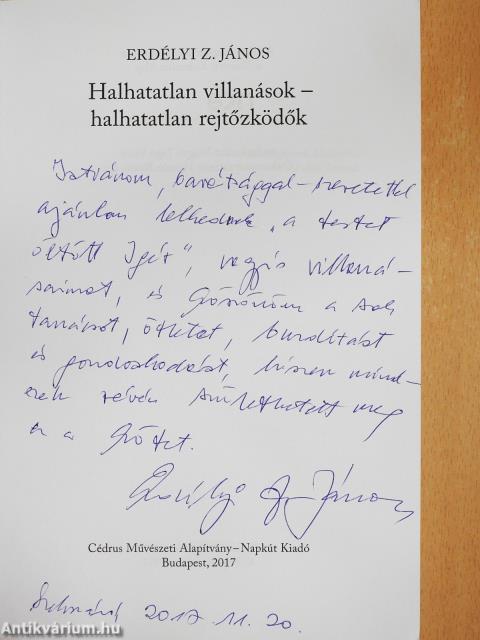 ERDÉLYI Z. JÁNOS
Halhatatlan villanások –
halhatatlan rejtőzködők
Istvánom, barátsággal–szeretettel
ajánlom lelkednek „a testet
öltött Igét”, vagyis villaná-
saimat, és köszönöm a sok
tanácsot, ötletet, buzdítást
és gondoskodást, hiszen mind-
ezek révén születhetett meg
ez a kötet.
Erdélyi Z. János
Cédrus Művészeti Alapítvány – Napkút Kiadó
Budapest, 2017
2017. 11. 20.
Antikvárium.hu